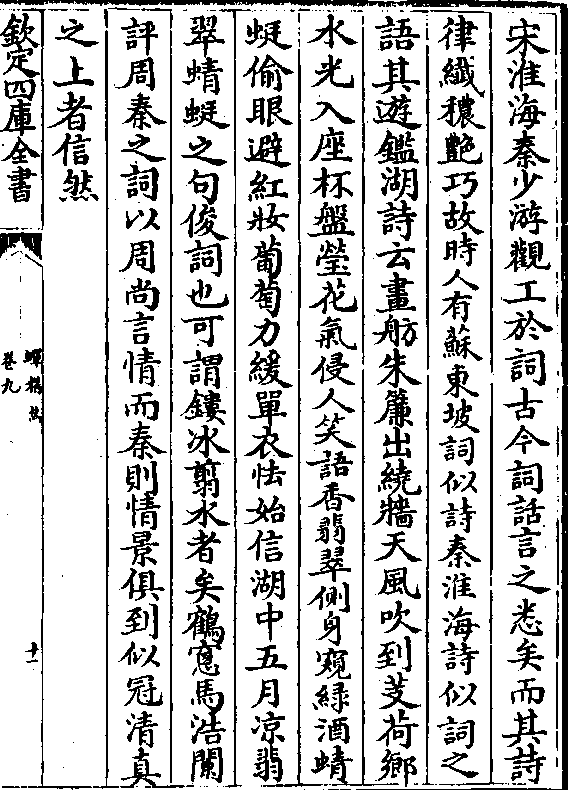 宋淮海秦少游觀工於詞古今詞話言之悉矣而其詩
律纎穠艷巧故時人有蘇東坡詞似詩秦淮海詩似詞之
語其遊鑑湖詩云畫舫朱簾出繞牆天風吹到芰荷鄉
水光入座杯盤瑩花氣侵人笑語香翡翠側身窺緑酒蜻
蜓偷眼避紅妝葡萄力緩單衣怯始信湖中五月凉翡
翠蜻蜓之句俊詞也可謂鏤冰剪水者矣鶴窻馬浩闌
評周秦之詞以周尚言情而秦則情景俱到似冠清真
之上者信然
欽定四庫全書
卷九
十一